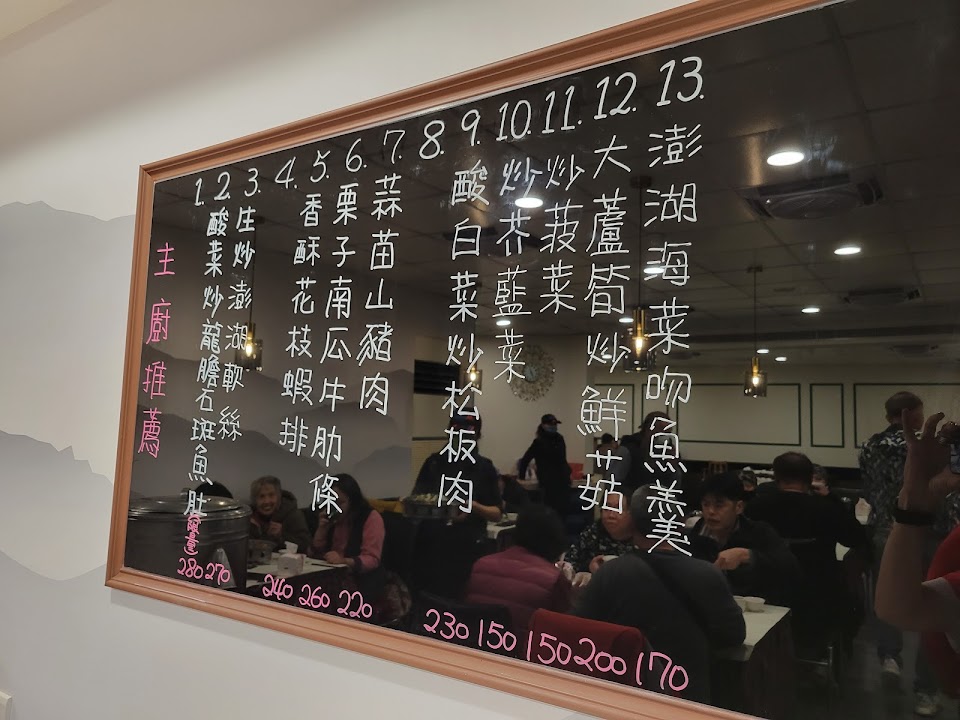 主廚推薦
1.
2. 酸菜炒龍膽石斑魚肚(限量) 280
3. 生炒澎湖軟絲 270
4.
5. 香酥花枝蝦排 240
6. 栗子南瓜牛肋條 260
7. 蒜苗山豬肉 220
8.
9. 酸白菜炒松板肉 230
10. 炒芥藍菜 150
11. 炒菠菜 150
12. 大蘆筍炒鮮菇 200
13. 澎湖海菜吻魚羹 170